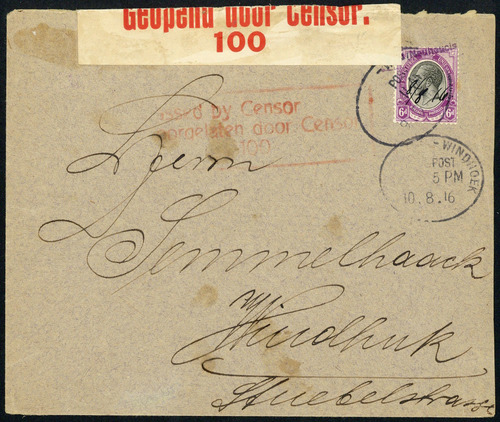 Geopend door Censor.
100
ssed by Censor
orgelaten door Censo
100
6d 6d
WINDHOEK
POST
5 PM
10.8.16
Herrn
Semmelhaack
Windhuk
Stuebelstrasse